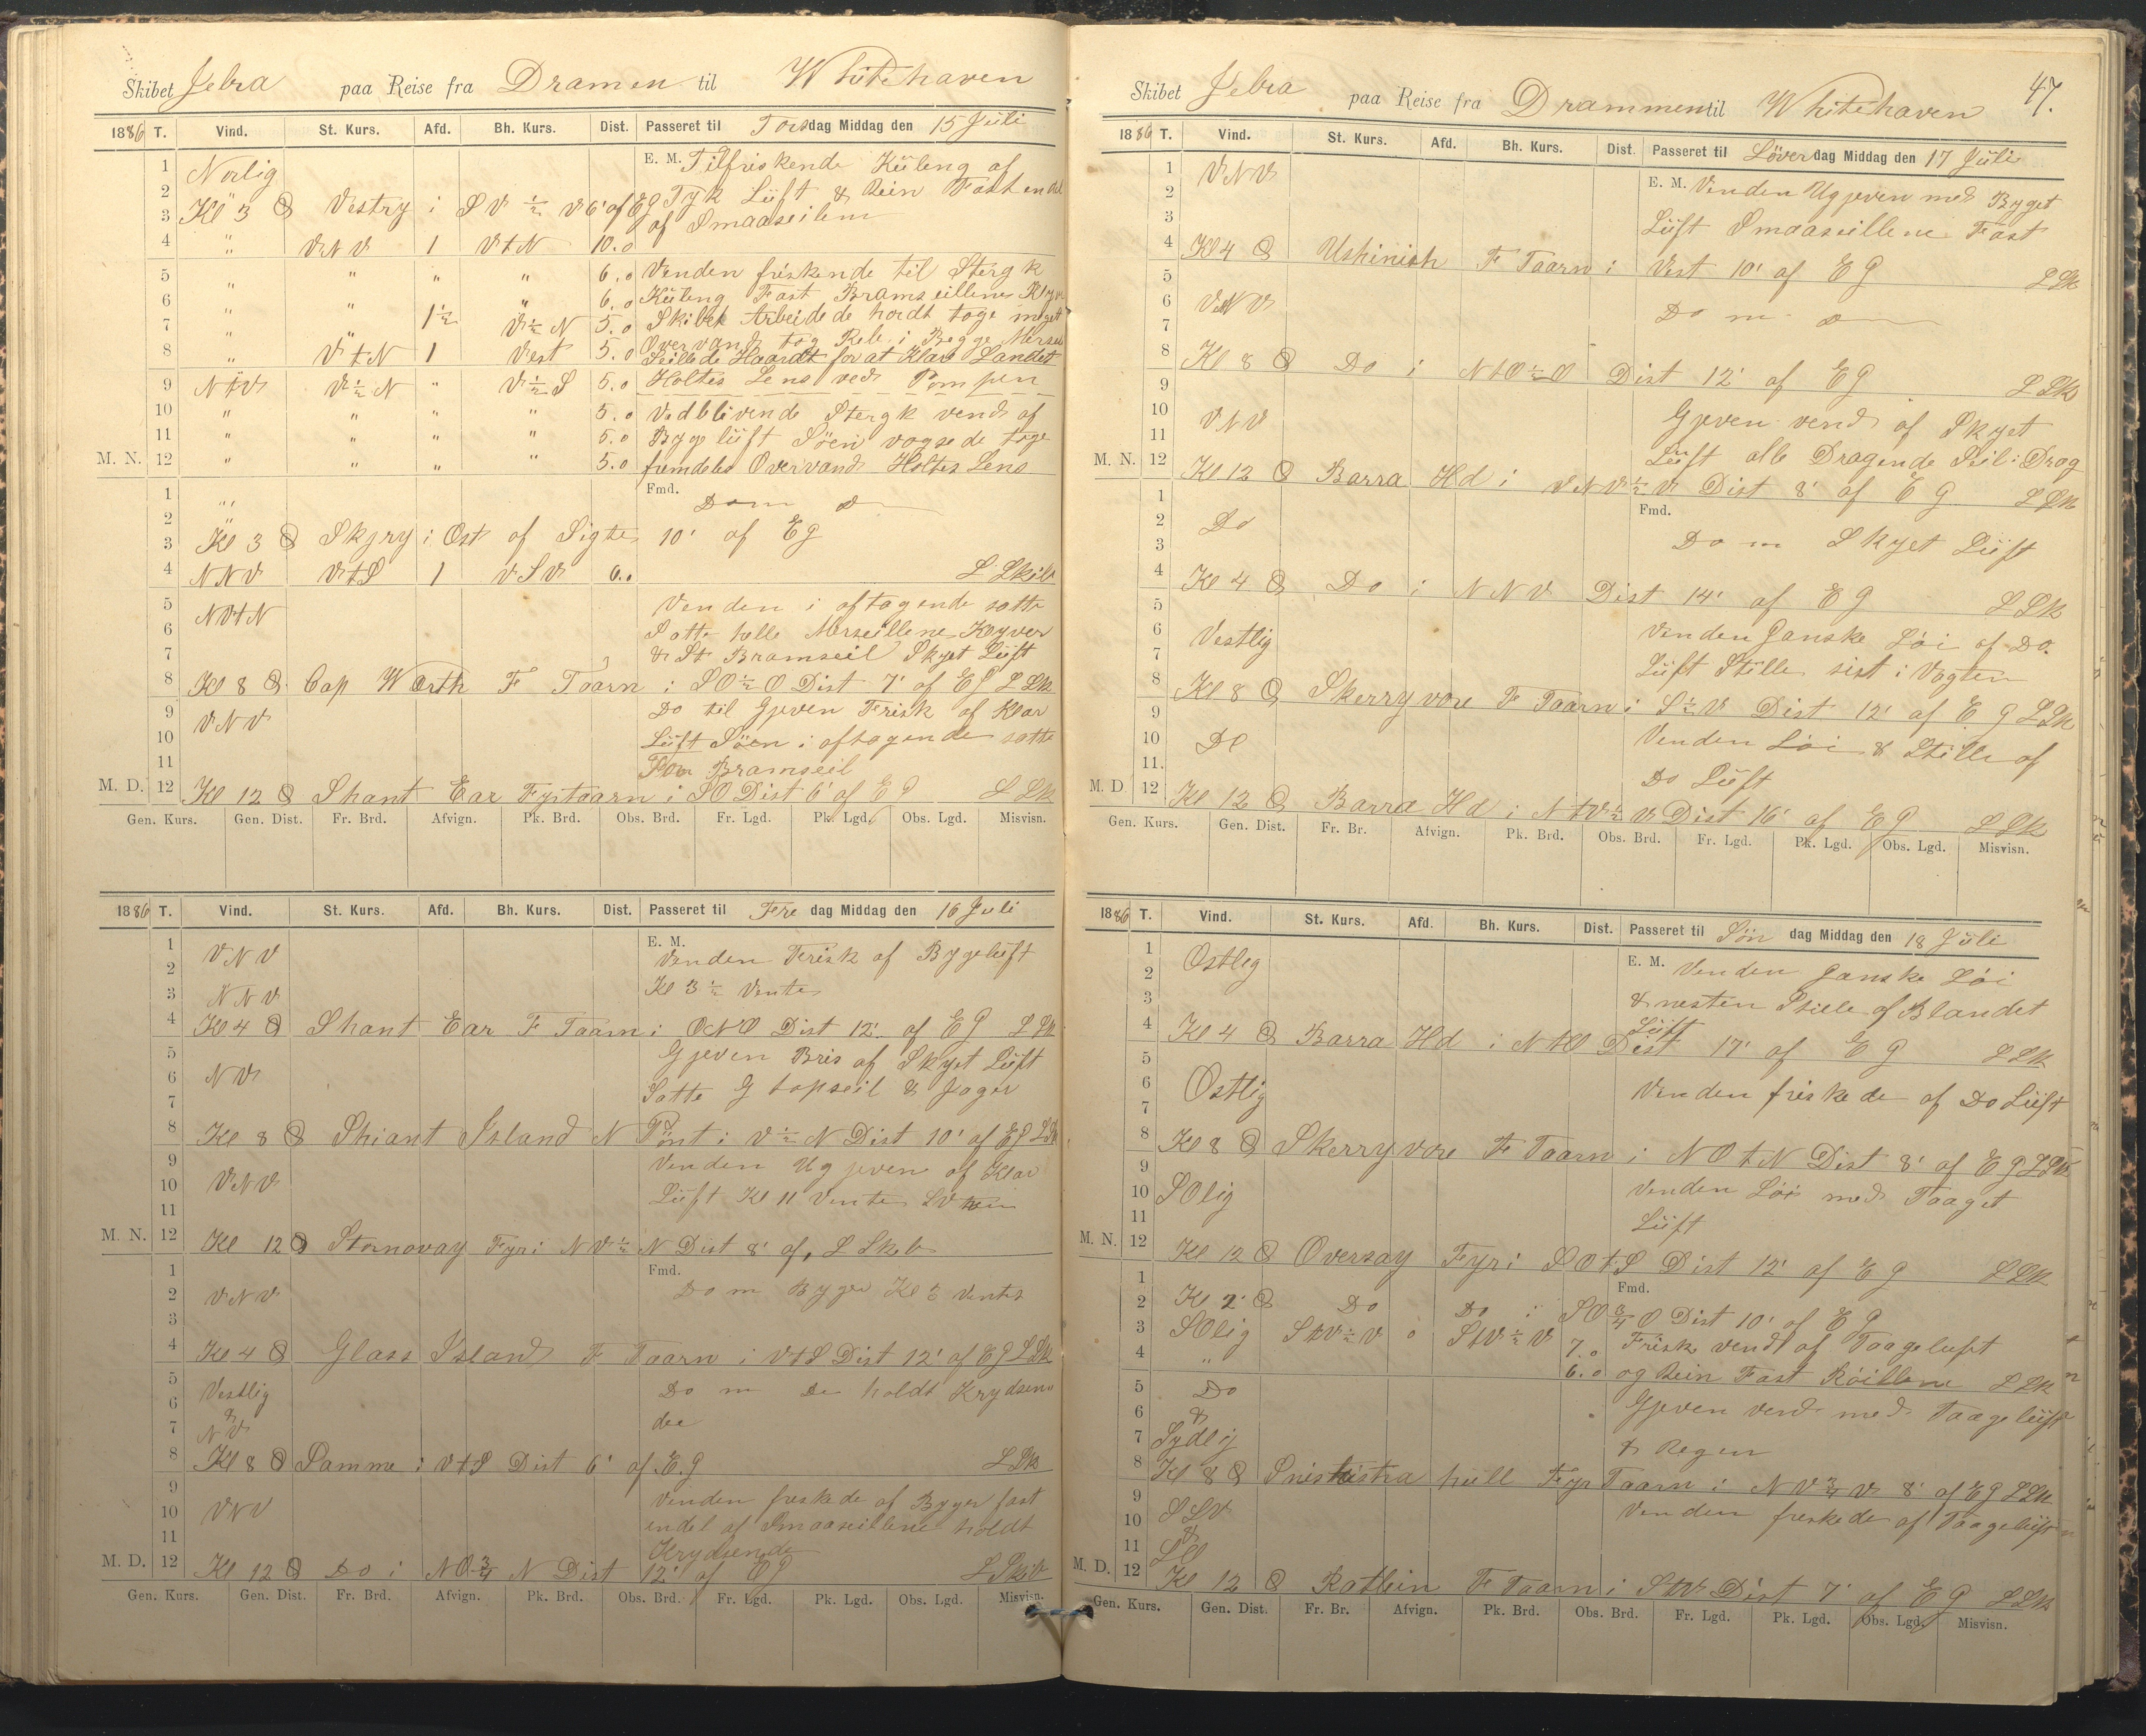 Skibet Jebra paa Reise fra Dramen til Whitehaven
1886 T. Vind. St. Kurs. Afd. Bh. Kurs. Dist. Passeret til Torsdag Middag den 15 Juli
1 Norlig E. M. Tilfriskende Küling af
2 Tyk Lüft & Rein Fast endel
3 Kl 3 Vestry i SV ½ V 6' af EG af Smaaseilene
4 " VNV 1 VtN 10.0
5 " " " " 6.0 Vinden friskende til Stergk
6 " " " 6.0 Küling Fast Bramseillene Klyver
7 " " 1½ V½N 5.0 Skibet Arbeidede hordt toge meget
8 " VtN 1 Vest 5.0 Overvand tog Reb i Begge Merseil
Seillede Haardt for at Klare Landet
9 NtV V½N " V½S 5.0 Holtes Lens ved Pompen
10 " " " " 5.0 Vedblivende Stergk vend af
11 " " " " 5.0 Bygelüft Söen vogsede toge
M. N. 12 " " " " 5.0 fremdeles Overvand Holtes Lens
1 " Fmd. Do m Do
2 "
3 Kl 3 Skjry i Ost af Sigte 10' af EG
4 NNV VtS 1 VSV 6.0 L Skib
5 NVtN Venden i aftagende satte
6 Satte helle Merseillene Klyver
7 & St Bramseil Skyet Lüft
8 Kl 8 Cap Warth F Taarn i SO½O Dist 7' af EG LSk
9 VNV Do til Gjeven Frisk af Klar
10 Lüft Söen i aftagende satte
11 For Bramseil
M. D. 12 Kl 12 Shant Ear Fyrtaarn i SO Dist 6' af EG LSk
Gen. Kurs. Gen. Dist. Fr. Brd. Afvign. Pk. Brd. Obs. Brd. Fr. Lgd. Pk. Lgd. Obs. Lgd. Misvisn.
1886 T. Vind. St. Kurs. Afd. Bh. Kurs. Dist. Passeret til Fredag Middag den 16 Juli
1 VNV E. M. Vinden Frisk af Bygelüft
2
3 NNV Kl 3½ Vente
4 Kl 4 Shant Ear F Taarn i ONO Dist 12' af EG LSk
5 Gjeven Bris af Skyet Lüft
6 NV Satte G topseil & Jager
7
8 Kl 8 Shiant Island N Pönt i V½N Dist 10' af EG LSk
9 Venden Ugjeven af Klar
10 VNV Lüft Kl 11 Vente
11
M. N. 12 Kl 12 Stornovay Fyr i NV½N Dist 8' af, L Skib
1 Fmd.
2 VNV Do m Byger Kl 3 Ventes
3
4 Kl 4 Glass Island F Taarn i VtS Dist 12' af EG LSk
5 Vestlig Do m Do holdt Krydsen
6 & de
7 NV
8 Kl 8 Samme i VtS Dist 6' af E.G LSk
9 Venden freskede af Byger fast
10 VNV endel af Smaaseillene holdt
11 Krydsende
M. D. 12 Kl 12 Do i NO¾N Dist 12' af EG L Skib
Gen. Kurs. Gen. Dist. Fr. Brd. Afvign. Pk. Brd. Obs. Brd. Fr. Lgd. Pk. Lgd. Obs. Lgd. Misvisn.
47.
Skibet Jebra paa Reise fra Drammen til Whitehaven
1886 T. Vind. St. Kurs. Afd. Bh. Kurs. Dist. Passeret til Löverdag Middag den 17 Jüli
1 VNV E. M. Venden Ugjeven med Byget
2 Lüft Smaaseillene Fast
3
4 Kl 4 Ushinish F Taarn i Vest 10' af EG LSk
5
6 VNV Do m Do
7
8 Kl 8 Do i NtO½O Dist 12' af EG LSk
9
10 VNV Gjeven vend af Skyet
11 Lüft alle Dragende Seil i Drag
M. N. 12 Kl 12 Barra Hd i VNV½V Dist 8' af EG LSk
1 Fmd.
2 Do Do m Skyet Lüft
3
4 Kl 4 Do i NNV Dist 14' af EG LSk
5 Venden Ganske Löi af Do.
6 Vestlig Lüft Stille sist i Vagten
7
8 Kl 8 Skerryvore F Taarn i S½V Dist 12' af EG LSk
9 Venden Löi & Stille af
10 Do Do Lüft
11.
M. D 12 Kl 12 Barra Hd i NtV½V Dist 16' af EG LSk
Gen. Kurs. Gen. Dist. Fr. Br. Afvign. Pk. Brd. Obs. Brd. Fr. Lgd. Pk. Lgd. Obs. Lgd. Misvisn.
1886 T. Vind. St. Kurs. Afd. Bh. Kurs. Dist. Passeret til Søndag Middag den 18 Jüli
1 Ostlig E. M. Venden Ganske Löi
2 & nesten Stille af Blandet
3 Lüft
4 Kl 4 Barra Hd i NtO Dist 17' af EG LSk
5
6 Ostlig Venden friskede af Do Lüft
7
8 Kl 8 Skerryvore F Taarn i NOtN Dist 8' af EG LSk
9 Venden Löi med Taaget
10 SOlig Lüft
11
M. N. 12 Kl 12 Oversay Fyr i SOtS Dist 12' af EG LSk
1 Fmd.
2 Kl 2 Do Do i SO¾O Dist 10' af EG
3 SOlig StV½V 0 StV½V 7.0 Frisk vend af Taageluft
4 " 6.0 og Rein Fast Röillene LSk
5 Do Gjeven vend med Taagelüft
6 & & Regen
7 Sydlig
8 Kl 8 hüll Fyr Taarn i NV¾V 8' af EG LSk
9 SSV Venden freskede af Taagelüft
10 &
11
M. D. 12 Kl 12 Ratlein F Taarn i StV Dist 7' af EG LSk
Gen. Kurs. Gen. Dist. Fr. Br. Afvign. Pk. Brd. Obs. Brd. Fr. Lgd. Pk. Lgd. Obs. Lgd. Misvisn.